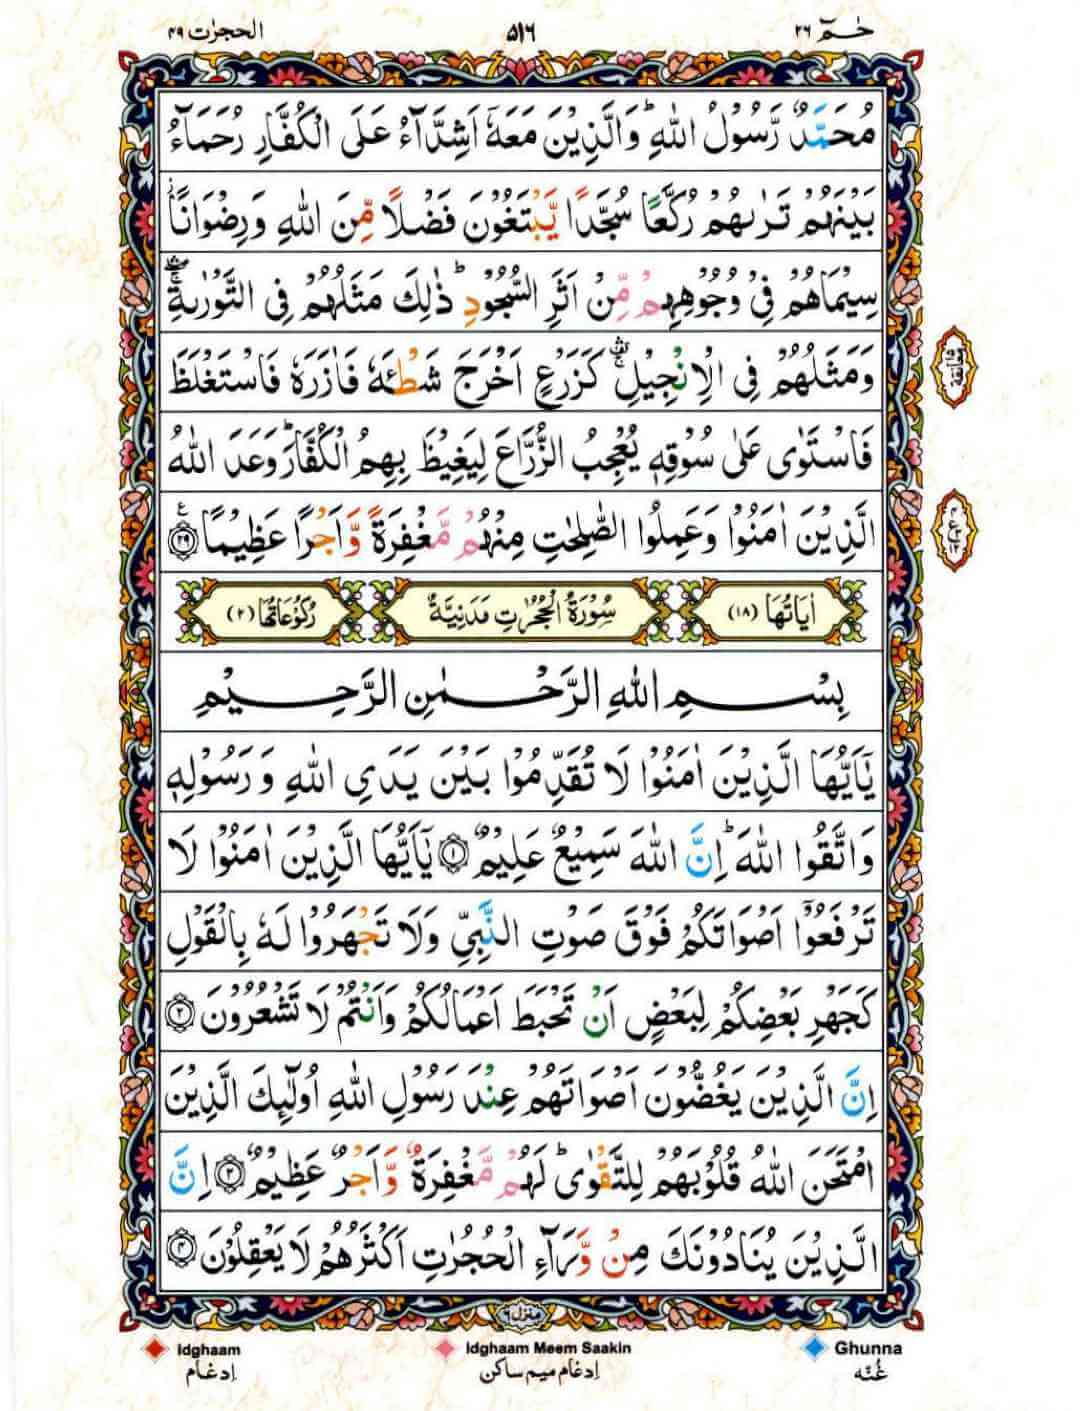 حٰمٓ ٢٦ ٥١٦ الحجرٰت ٤٩
مُحَمَّدٌ رَّسُوْلُ اللّٰهِ ؕ وَالَّذِيْنَ مَعَهٗۤ اَشِدَّآءُ عَلَى الْكُفَّارِ رُحَمَآءُ
بَيْنَهُمْ تَرٰىهُمْ رُكَّعًا سُجَّدًا يَّبْتَغُوْنَ فَضْلًا مِّنَ اللّٰهِ وَرِضْوَانًا ؗ
سِيْمَاهُمْ فِيْ وُجُوْهِهِمْ مِّنْ اَثَرِ السُّجُوْدِ ؕ ذٰلِكَ مَثَلُهُمْ فِى التَّوْرٰىةِ ۛۖۚ
وَمَثَلُهُمْ فِى الْاِنْجِيْلِ ۛۚ كَزَرْعٍ اَخْرَجَ شَطْئَهٗ فَاٰزَرَهٗ فَاسْتَغْلَظَ
فَاسْتَوٰى عَلٰى سُوْقِهٖ يُعْجِبُ الزُّرَّاعَ لِيَغِيْظَ بِهِمُ الْكُفَّارَ ؕ وَعَدَ اللّٰهُ
الَّذِيْنَ اٰمَنُوْا وَعَمِلُوا الصّٰلِحٰتِ مِنْهُمْ مَّغْفِرَةً وَّاَجْرًا عَظِيْمًا ۧ ٢٩
اٰيَاتُهَا (١٨) سُوْرَةُ الْحُجُرٰتِ مَدَنِيَّةٌ رُكُوْعَاتُهَا (٢)
بِسْمِ اللّٰهِ الرَّحْمٰنِ الرَّحِيْمِ
يٰۤاَيُّهَا الَّذِيْنَ اٰمَنُوْا لَا تُقَدِّمُوْا بَيْنَ يَدَىِ اللّٰهِ وَرَسُوْلِهٖ
وَاتَّقُوا اللّٰهَ ؕ اِنَّ اللّٰهَ سَمِيْعٌ عَلِيْمٌ ١ يٰۤاَيُّهَا الَّذِيْنَ اٰمَنُوْا لَا
تَرْفَعُوْۤا اَصْوَاتَكُمْ فَوْقَ صَوْتِ النَّبِيِّ وَلَا تَجْهَرُوْا لَهٗ بِالْقَوْلِ
كَجَهْرِ بَعْضِكُمْ لِبَعْضٍ اَنْ تَحْبَطَ اَعْمَالُكُمْ وَاَنْتُمْ لَا تَشْعُرُوْنَ ٢
اِنَّ الَّذِيْنَ يَغُضُّوْنَ اَصْوَاتَهُمْ عِنْدَ رَسُوْلِ اللّٰهِ اُولٰٓئِكَ الَّذِيْنَ
امْتَحَنَ اللّٰهُ قُلُوْبَهُمْ لِلتَّقْوٰى ؕ لَهُمْ مَّغْفِرَةٌ وَّاَجْرٌ عَظِيْمٌ ٣ اِنَّ
الَّذِيْنَ يُنَادُوْنَكَ مِنْ وَّرَآءِ الْحُجُرٰتِ اَكْثَرُهُمْ لَا يَعْقِلُوْنَ ٤
منزل ٦
idghaam Idghaam Meem Saakin Ghunna
غُنّه اِدغام ميم ساكن اِدغام